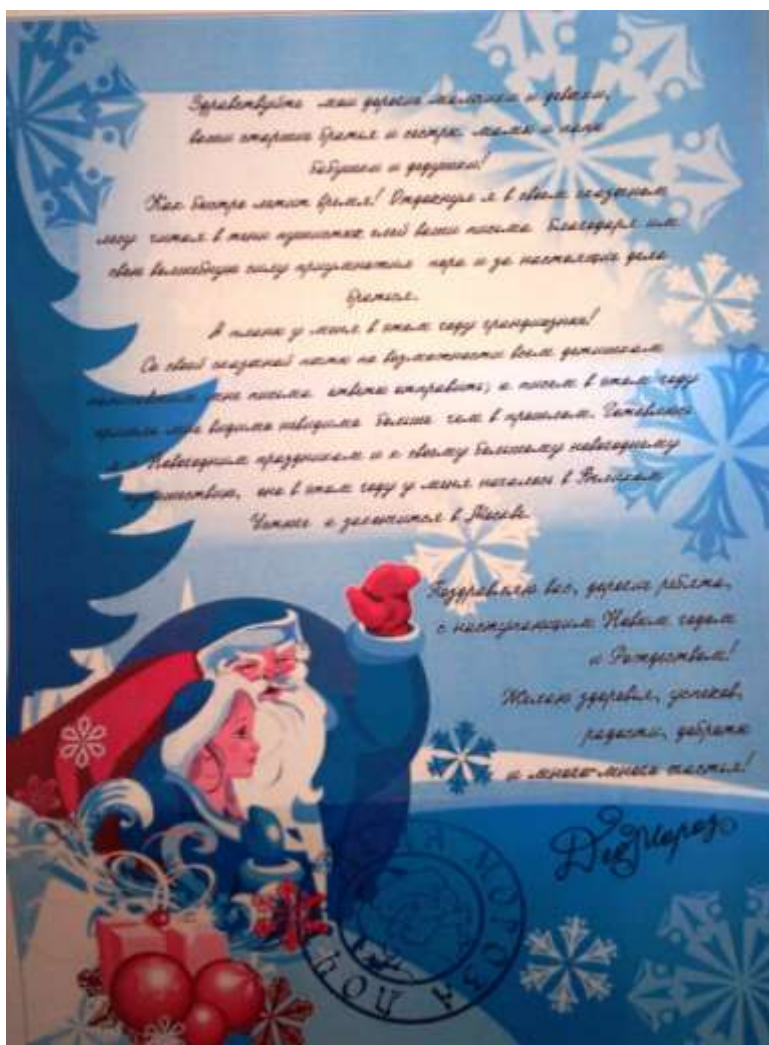 Здравствуйте мои дорогие мальчики и девочки,
ваши старшие братья и сестры мамы и папы
бабушки и дедушки!
Как быстро летит время! Отдохнул я в своем сказочном
лесу читая в тени пушистых елей ваши письма Благодаря им
свою волшебную силу приумножил пора и за настоящие дела
браться.
А планы у меня в этом году грандиозные!
Со своей сказочной почты по возможности всем детишкам
мне письма ответы отправить, а писем в этом году
пришло мне видимо невидимо больше чем в прошлом. Готовлюсь
я к Новогодним праздникам и к своему большому новогоднему
путешествию, оно в этом году у меня началось в Великом
Устюге а закончится в Москве.
Поздравляю вас, дорогие ребята,
с наступающим Новым годом
и Рождеством!
Желаю здоровья, успехов,
радости, доброты
и много-много счастья!
Дед Мороз
ДЕДА МОРОЗА